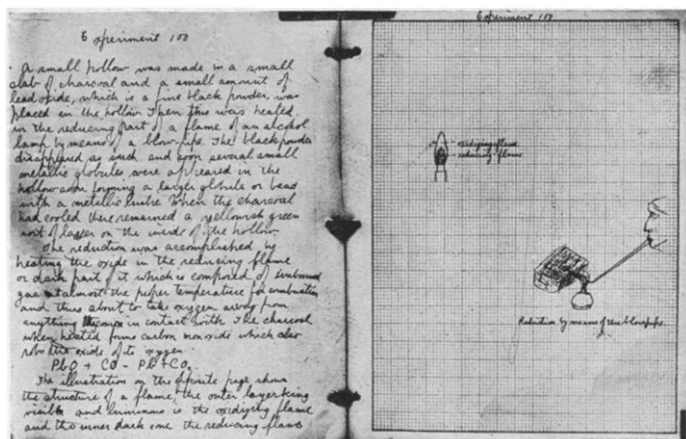 Experiment 100
A small hollow was made in a small
slab of charcoal and a small amount of
lead oxide, which is a fine black powder, was
placed in the hollow. Then this was heated
in the reducing part of a flame of an alcohol
lamp by means of a blow-pipe. The black powder
disappeared as such and soon several small
metallic globules were appeared in the
hollow soon forming a larger globule or bead
with a metallic lustre. When the charcoal
had cooled there remained a yellowish green
sort of on the inside of the hollow.
The reduction was accomplished by
heating the oxide in the reducing flame
or dark part of it which is composed of unburned
gas at almost the proper temperature for combustion
and thus about to take oxygen away from
anything in contact with. The charcoal
when heated forms carbon monoxide which also
robs the oxide of its oxygen.
PbO + CO - Pb + CO2
The illustration on the opposite page, shows
the structure of a flame, the outer layer being
visible and luminous is the oxidizing flame
and the inner dark one the reducing flame
Experiment 100
oxidizing flame
reducing flame
Reduction by means of the blowpipe.